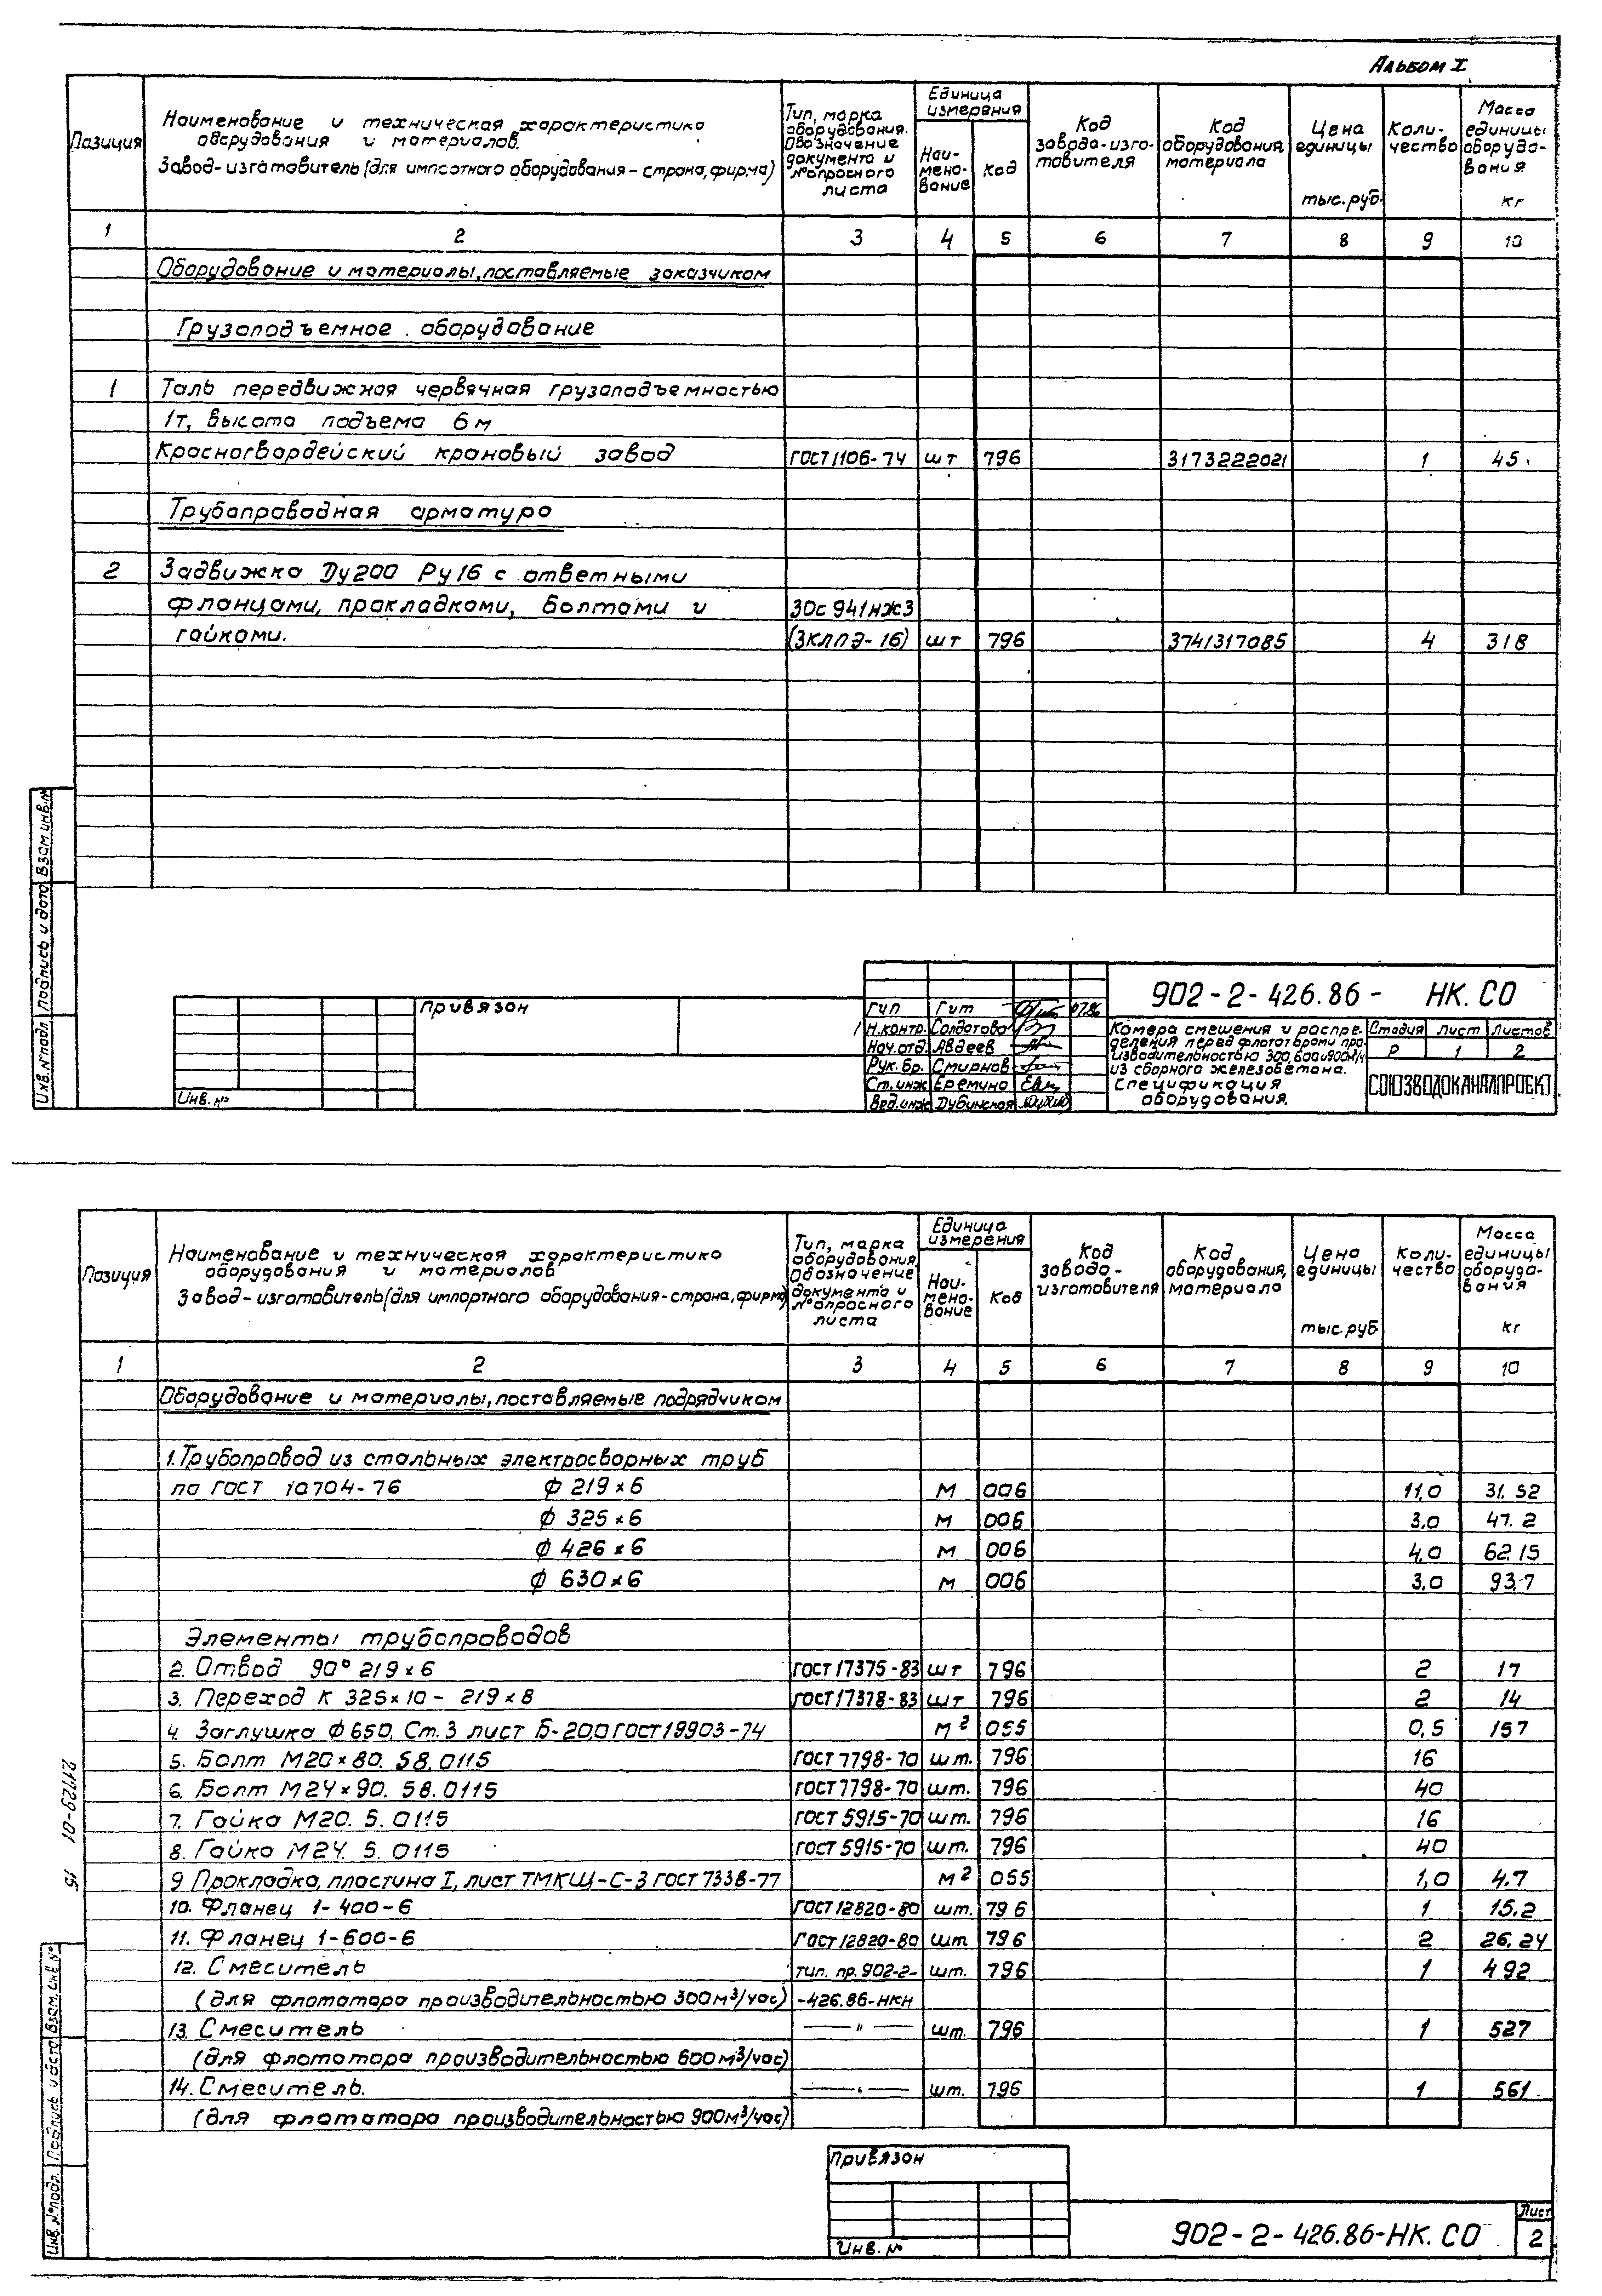 Альбом I
Позиция
Наименование и техническая характеристика
оборудования и материалов.
Завод-изготовитель (для импортного оборудования - страна, фирма)
Тип, марка
оборудования.
Обозначение
документа и
№ опросного
листа
Единица
измерения
Наи-
мено-
вание
Код
Код
завода-изго-
товителя
Код
оборудования,
материала
Цена
единицы
тыс. руб.
Коли-
чество
Масса
единицы
оборудо-
вания
кг
1 2 3 4 5 6 7 8 9 10
Оборудование и материалы, поставляемые заказчиком
Грузоподъемное оборудование
1 Таль передвижная червячная грузоподъемностью
1т, высота подъема 6 м
Красногвардейский крановый завод ГОСТ 1106-74 шт 796 3173222021 1 45
Трубопроводная арматура
2 Задвижка Ду200 Ру16 с ответными
фланцами, прокладками, болтами и 30с 941нж3
гайками. (ЗКЛПЭ-16) шт 796 3741317085 4 318
Инв.№подл Подпись и дата Взам.инв.№
Привязан
Инв. №
Гип Гит 07.86
Н.контр. Солдатова
Нач.отд. Авдеев
Рук. бр. Смирнов
Ст. инж Еремина
Вед.инж Дубинская
902-2-426.86- НК. СО
Камера смешения и распре-
деления перед флотаторами про-
изводительностью 300, 600 и 900м³/ч
из сборного железобетона.
Спецификация
оборудования.
Стадия Лист Листов
Р 1 2
СОЮЗВОДОКАНАЛПРОЕКТ
Позиция
Наименование и техническая характеристика
оборудования и материалов
Завод-изготовитель (для импортного оборудования-страна, фирма)
Тип, марка
оборудования,
Обозначение
документа и
№ опросного
листа
Единица
измерения
Наи-
мено-
вание
Код
Код
завода-
изготовителя
Код
оборудования,
материала
Цена
единицы
тыс. руб
Коли-
чество
Масса
единицы
оборудо-
вания
кг
1 2 3 4 5 6 7 8 9 10
Оборудование и материалы, поставляемые подрядчиком
1. Трубопровод из стальных электросварных труб
по ГОСТ 10704-76 ф 219×6 м 006 11,0 31.52
ф 325×6 м 006 3,0 47.2
ф 426×6 м 006 4,0 62.15
ф 630×6 м 006 3,0 93,7
Элементы трубопроводов
2. Отвод 90° 219×6 ГОСТ 17375-83 шт 796 2 17
3. Переход К 325×10 - 219×8 ГОСТ 17378-83 шт 796 2 14
4. Заглушка ф 650, Ст. 3 лист Б-20,0 ГОСТ 19903-74 м² 055 0,5 157
5. Болт М20×80. 58.0115 ГОСТ 7798-70 шт. 796 16
6. Болт М24×90. 58.0115 ГОСТ 7798-70 шт. 796 40
7. Гайка М20. 5. 0115 ГОСТ 5915-70 шт. 796 16
8. Гайка М24. 5. 0115 ГОСТ 5915-70 шт. 796 40
9 Прокладка, пластина I, лист ТМКЩ-С-3 ГОСТ 7338-77 м² 055 1,0 4.7
10. Фланец 1-400-6 ГОСТ 12820-80 шт. 796 1 15.2
11. Фланец 1-600-6 ГОСТ 12820-80 шт 796 2 26.24
12. Смеситель тип. пр. 902-2- шт. 796 1 492
(для флотатора производительностью 300м³/час) -426.86-НКН
13. Смеситель — " — шт. 796 1 527
(для флотатора производительностью 600м³/час)
14. Смеситель. — " — шт. 796 1 561
(для флотатора производительностью 900м³/час)
21729-01 15
Инв.№подл. Подпись и дата Взам. инв №
Привязан
Инв. №
902-2-426.86-НК. СО
Лист
2